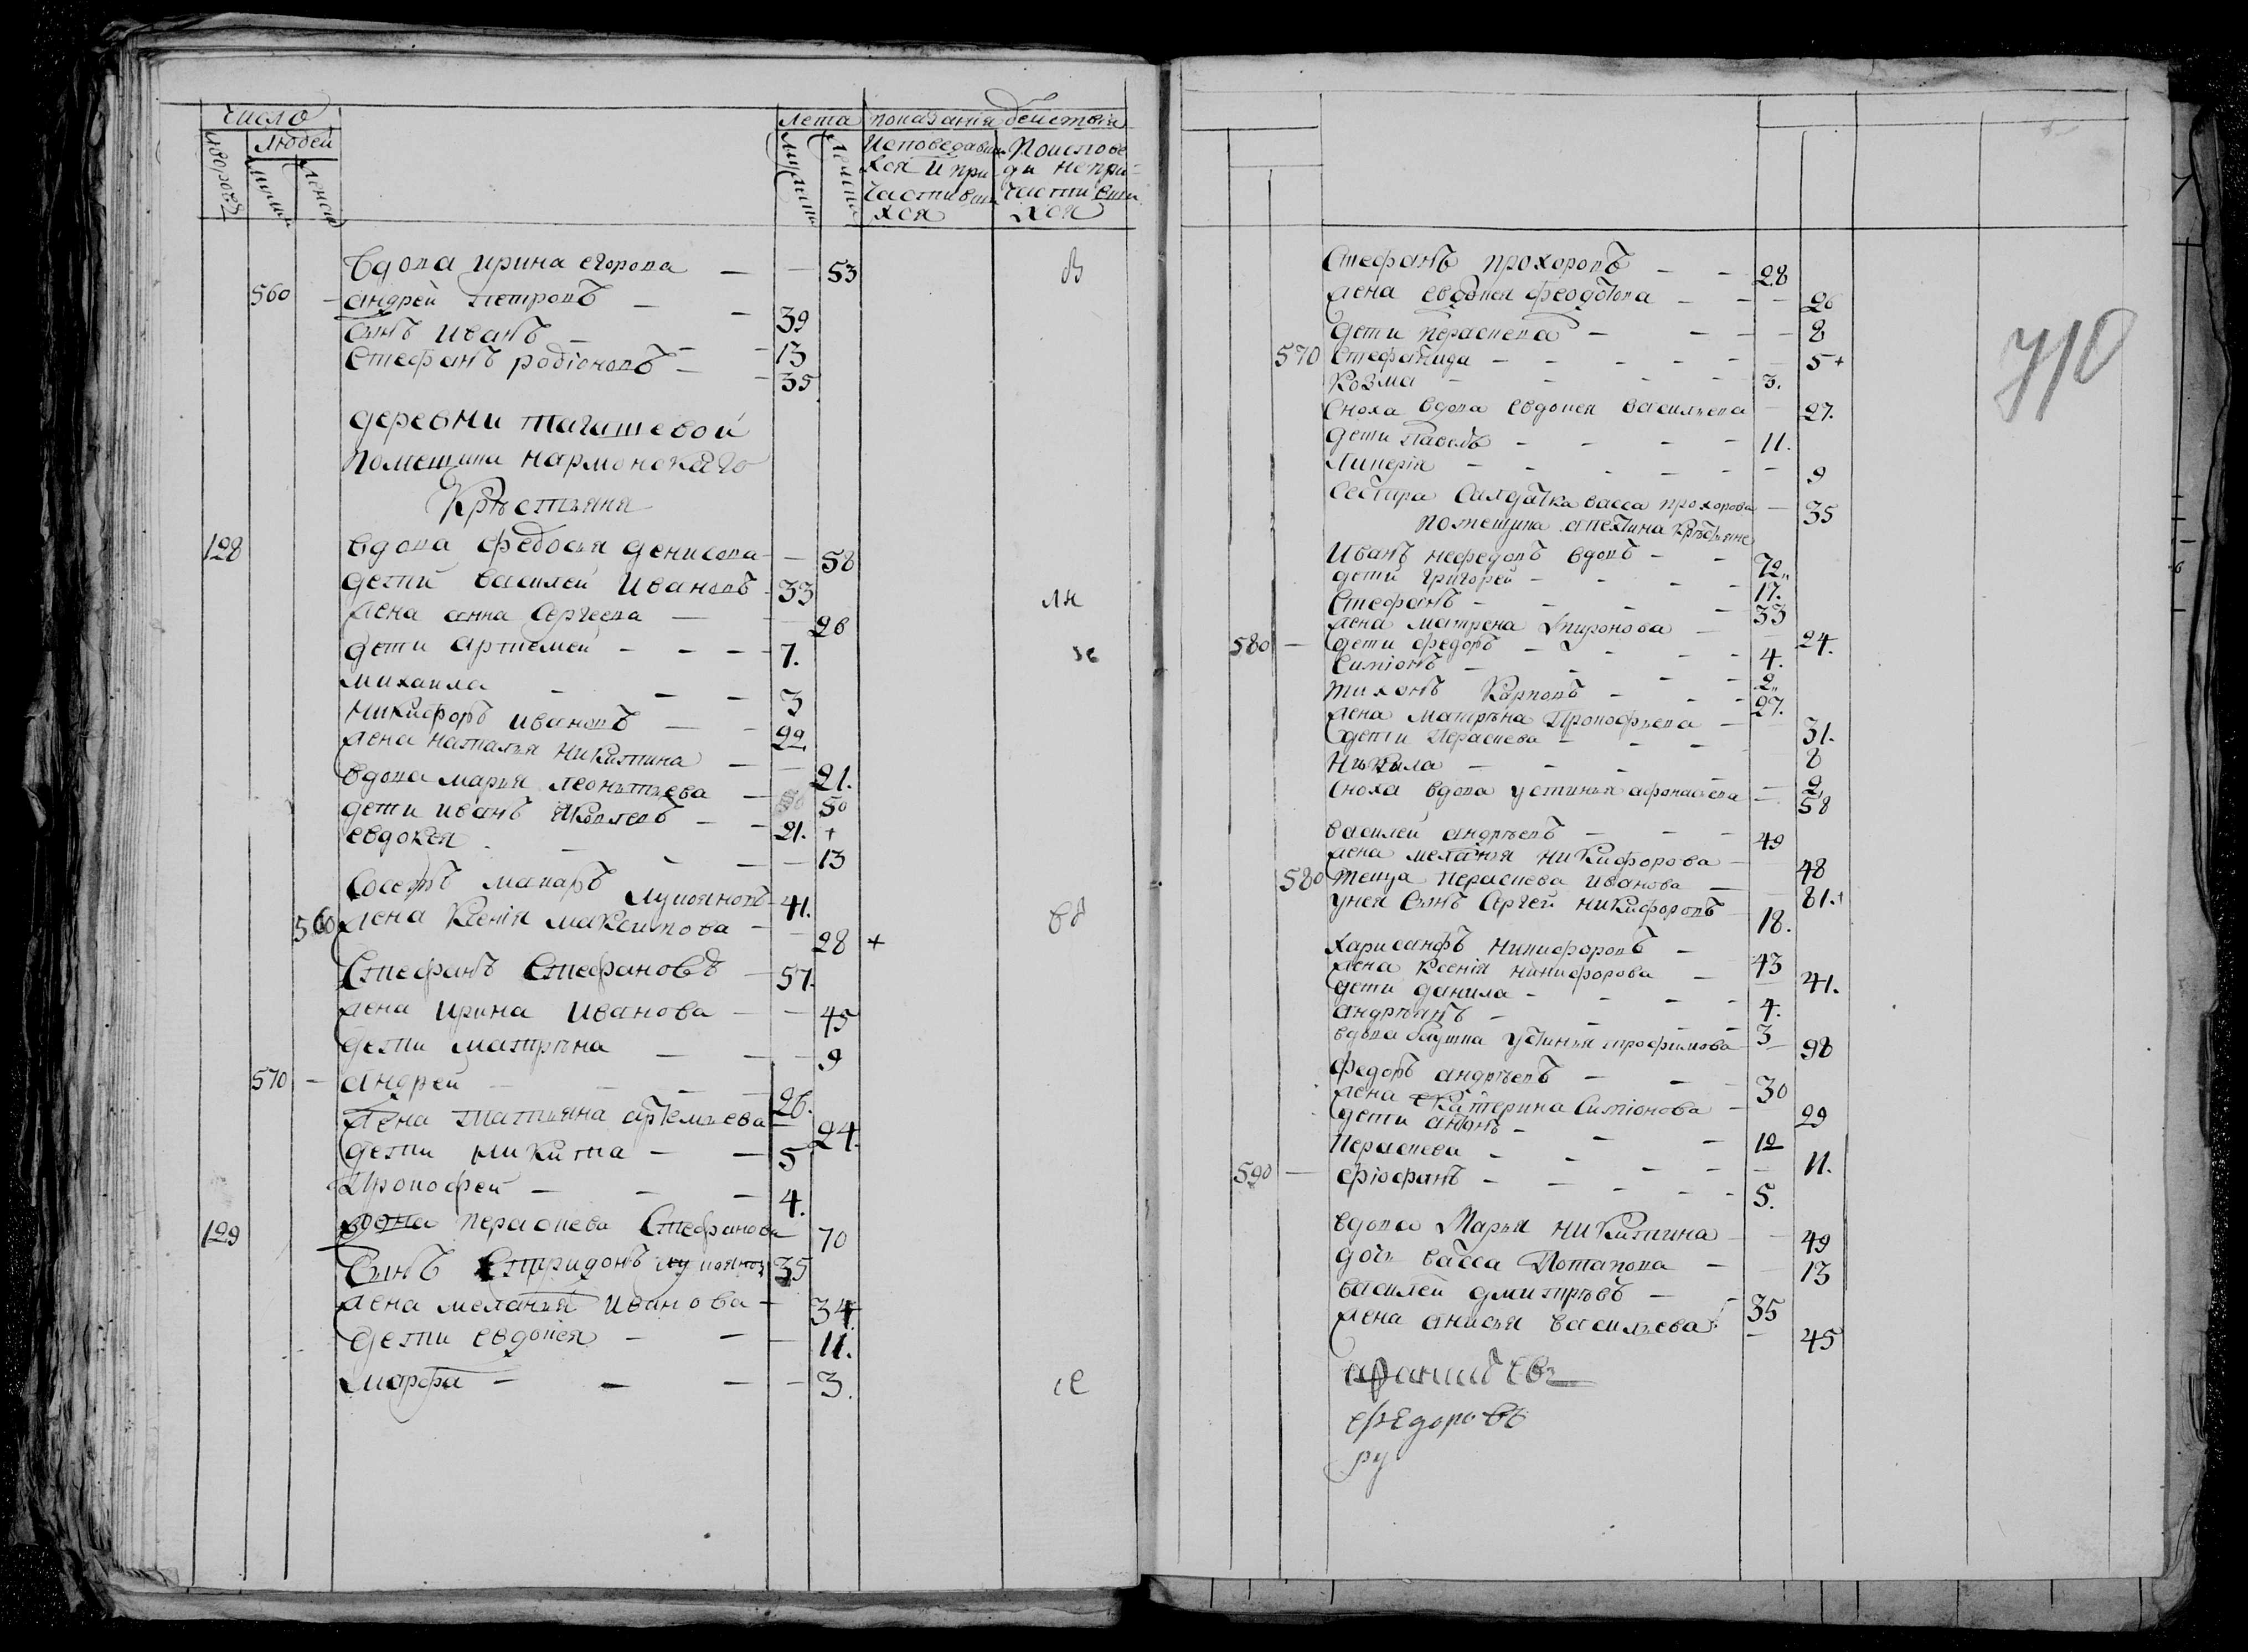 число
лета показания действія
дворовъ
людей
мужеск
женск
мужеск
женск
Исповедавш
хся и при
частивши
хся
Поиспове
ди непри
частивши
хся
вдова ирина егорова — — 53
560 — андрей петровъ — — 39
сынъ иванъ — — 13
стефанъ родіоновъ — — 35
деревни тагашевой
помещика нармонскаго
Крѣстьяня
128 вдова федосья денисова — 58
дети василей ивановъ 33
жена анна сергеева — 26
дети артемей — — — 7.
михаила — — — 3
никифоръ ивановъ — — 22
жена наталья никитина — — 21.
вдова марья леонтьева — 50
дети иванъ яковлевъ — — 21. +
евдокея — — — 13
сосефъ макаръ лукояновъ 41.
560 жена ксенія максимова — 28 +
стефанъ стефановъ — 57.
жена ирина иванова — — 45
дети матрѣна — — — 9
570 — андрей — — — 26.
жена татьяна артемьева 24.
дети никита — — 5
прокофей — — — 4.
129 вдова параскева стефанова 70
сынъ спиридонъ лукоянов 35
жена меланья иванова — 34.
дети евдокея — — — 11.
марфа — — — — 3.
стефанъ прохоровъ — — 28
жена евдокея феодотова — — — 26
дети параскева — — — — 8
570 стефанида — — — — — 5 +
козма — — — — 3.
сноха вдова евдокея васильева — 27.
дети павелъ — — — — 11.
ликерія — — — — — — 9
сестра салдатка васса прохорова — 35
помещика апехтина крѣстьяне
иванъ нефедовъ вдовъ — — 72
дети григорей — — — 17.
стефанъ — — — — 33
жена матрена спиронова — — 24.
580 — дети федоръ — — — — 4.
симіонъ — — — — 2
тихонъ карповъ — — — 27.
жена матрѣна прокофьева — 31.
дети параскева — — — 8
никила — — — — — 2
сноха вдова устинья афонасьева — 58
василей андрѣевъ — — — 49
жена меланья никифорова — 48
580 теща параскева иванова — — 81.+
унея сынъ сергей никифоровъ 18.
харисанфъ никифоровъ — 43
жена ксенія никифорова — — 41.
дети данила — — — — 4.
андрѣанъ — — — — 3
вдова баушка устинья трофимова — 98
федоръ андрѣевъ — — — 30
жена екатерина симіонова — 29
дети антонъ — — — 12
параскева — — — — — 11.
590 — ефіофанъ — — — — — 5.
вдова марья никитина — — 49
дочь васса потапова — — 13
василей дмитрѣвъ — — 35
жена анисья васильева — 45
федоровъ
ру
710